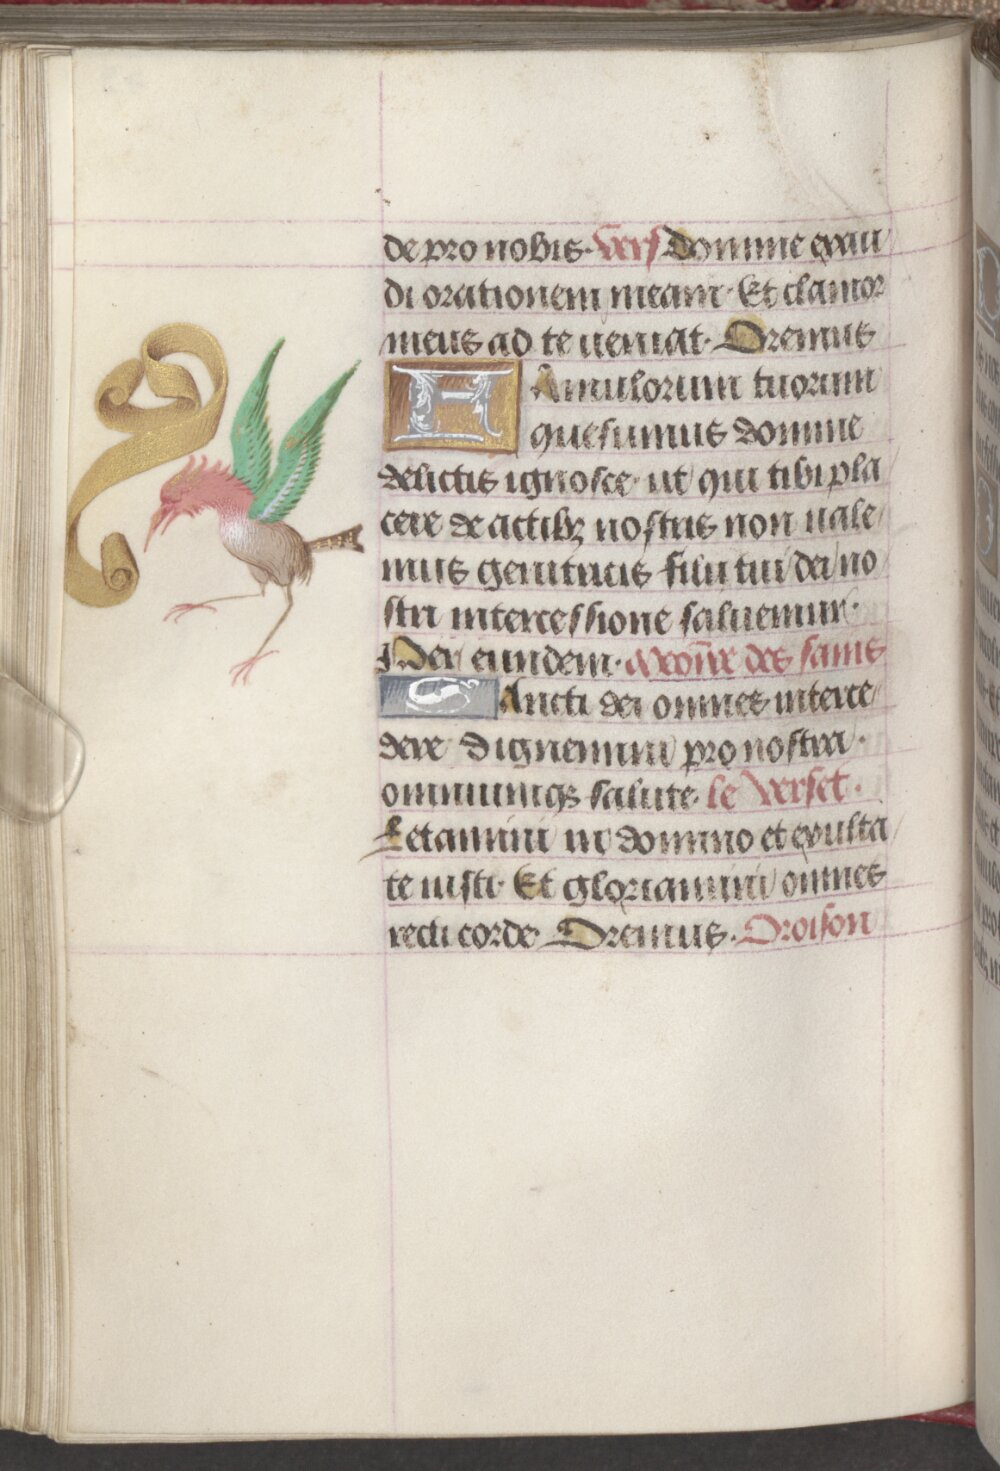 de pro nobis. Vers Domine exau
di orationem meam. Et clamor
meus ad te ueniat. Oremus
FAmulorum tuorum
quesumus domine
delictis ignosce. ut qui tibi pla
cere de actibz nostris non uale
mus genitricis filii tui dei no
stri intercessione saluemur.
Per eundem. des sains
SAncti dei omnes interce
dere dignemini pro nostra.
omniumqz salute. le verset.
Letamini in domino et exulta
te iusti. Et gloriamini omnes
recti corde Oremus. Oroison